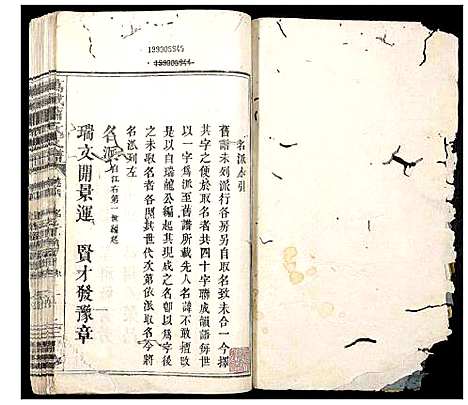 199005945
199005944
名派小引
舊譜未列派行各房另自取名致未合一今擇
其字之便於取名者共四十字聯成韻語每世
以一字為派至舊譜所載先人名諱不敢擅改
之故以自瑞龍公編起其現成之名卽以為字後
之未取名者各照其世代次第依派取名今將
名派列左
名派
自江右第一世編起
瑞文開景運 賢才發豫章